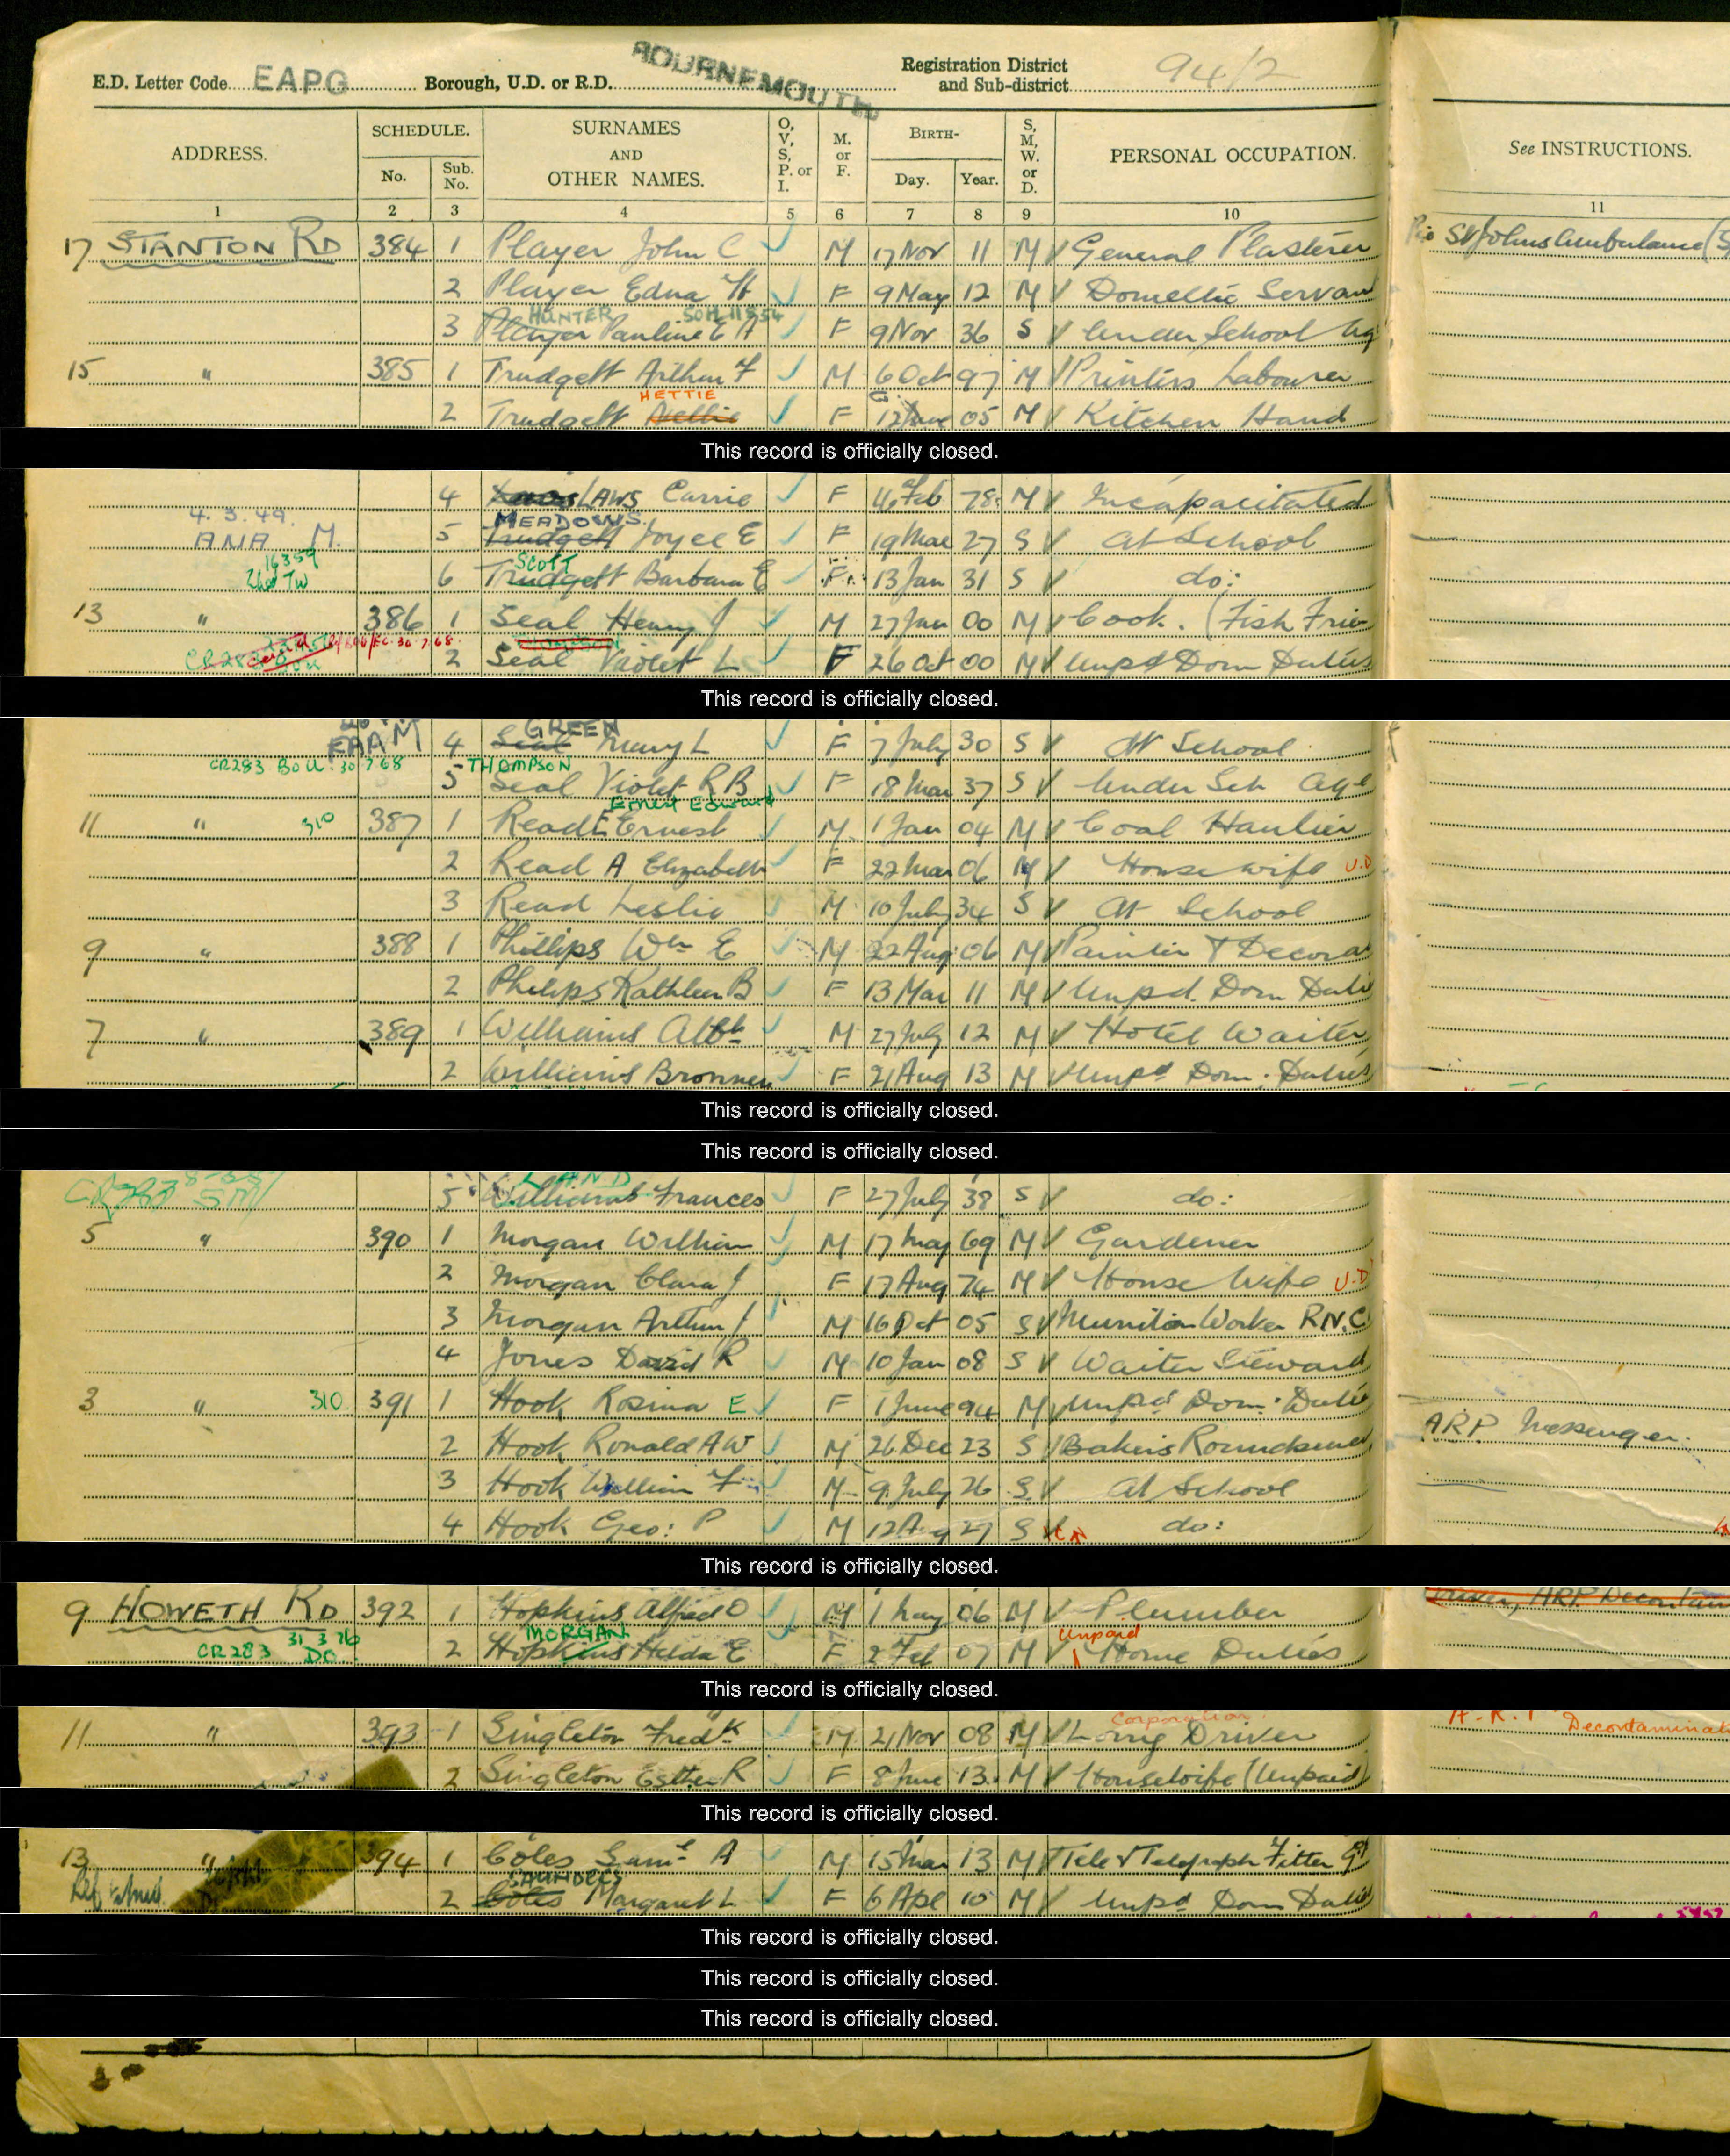 E.D. Letter Code EAPG Borough, U.D. or R.D. BOURNEMOUTH Registration District and Sub-district 94/2
ADDRESS. SCHEDULE. No. Sub. No. SURNAMES AND OTHER NAMES. O, V, S, P. or I. M. or F. BIRTH- Day. Year. S, M, W. or D. PERSONAL OCCUPATION. See INSTRUCTIONS.
1 2 3 4 5 6 7 8 9 10 11
17 STANTON RD 384 1 Player John C M 17 Nov 11 M General Plasterer St Johns Ambulance
2 Player Edna H F 9 May 12 M Domestic Servant
HUNTER
3 Player Pauline E A F 9 Nov 36 S Under School Ag
15 " 385 1 Trudgett Arthur F M 6 Oct 97 M Printers Labourer
HETTIE
2 Trudgett Nellie F 12 June 05 M Kitchen Hand
This record is officially closed.
4 LAWS Carrie F 4 Feb 78 M Incapacitated
4.3.49. MEADOWS
ANA M. 5 Trudgett Joyce E F 19 Mar 27 S At School
16359 SCOTT
6 Trudgett Barbara E F 13 Jan 31 S do:
13 " 386 1 Seal Henry J M 27 Jan 00 M Cook. (Fish Frier
30.7.68
2 Seal Violet L F 26 Oct 00 M Unpd Dom Duties
This record is officially closed.
GREEN
EAA M 4 Seal Mary L F 7 July 30 S At School
CR283 BOU 30 7 68 THOMPSON
5 Seal Violet R B F 18 Mar 37 S Under Sch Age
Ernest Edward
11 " 310 387 1 Read E Ernest M 1 Jan 04 M Coal Haulier
2 Read A Elizabeth F 22 Mar 06 M House wife U.D
3 Read Leslie M 10 July 34 S At School
9 " 388 1 Phillips Wm E M 22 Aug 06 M Painter & Decora
2 Philips Kathleen B F 13 Mar 11 M Unpd. Dom Dutie
7 " 389 1 Williams Albt M 27 July 12 M Hotel Waiter
2 Williams Bronwen F 21 Aug 13 M Unpd Dom. Duties
This record is officially closed.
This record is officially closed.
LAND
5 Williams Frances F 27 July 38 S do:
5 " 390 1 Morgan William M 17 May 69 M Gardener
2 Morgan Clara J F 17 Aug 74 M House Wife U.D
3 Morgan Arthur J M 16 Oct 05 S Munition Worker R.N.C
4 Jones David R M 10 Jan 08 S Waiter Steward
3 " 310 391 1 Hook Rosina E F 1 June 94 M Unpd Dom. Dutie
2 Hook Ronald A W M 26 Dec 23 S Bakers Roundsman ARP Messenger.
3 Hook William F M 9 July 26 S At School
4 Hook Geo: P M 12 Aug 27 S do:
This record is officially closed.
9 HOWETH RD 392 1 Hopkins Alfred O M 1 May 06 M Plumber
31 3 76 MORGAN Unpaid
CR283 DO 2 Hopkins Hilda E F 2 Feb 07 M Home Duties
This record is officially closed.
Corporation
11 " 393 1 Singleton Fredk M 21 Nov 08 M Lorry Driver Decontaminat
2 Singleton Esther R F 8 June 13 M Housewife (Unpaid)
This record is officially closed.
13 " 394 1 Coles Saml A M 15 Mar 13 M Tele & Telegraph Fitter
SAUNDERS
2 Coles Margaret L F 6 Apl 10 M Unpd Dom Dutie
This record is officially closed.
This record is officially closed.
This record is officially closed.